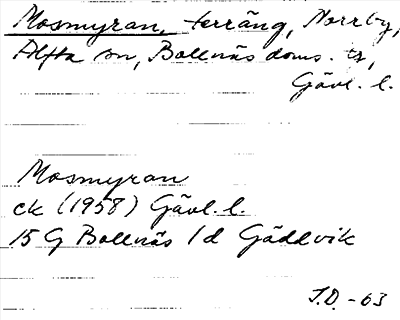 Mosmyran, terräng, Norrby,
Alfta sn, Bollnäs doms. ts,
Gävl. l.
Mosmyran
ek (1958) Gävl. l.
15 G Bollnäs 1d Gäddvik
J.D. -63